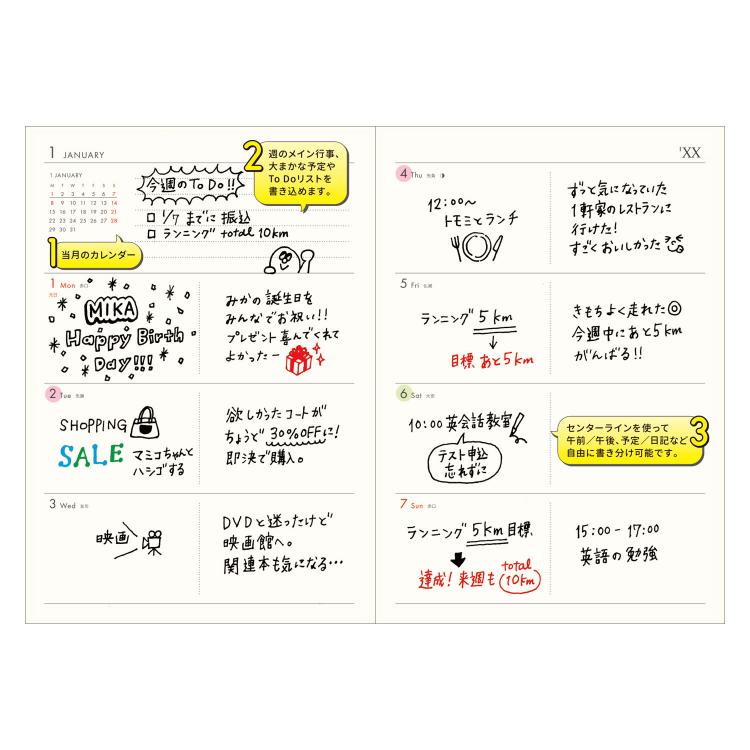 1 JANUARY
1 JANUARY
M T W T F S S
1 2 3 4 5 6 7
8 9 10 11 12 13 14
15 16 17 18 19 20 21
22 23 24 25 26 27 28
29 30 31
今週のTo Do!!
□ 1/7 までに 振込
□ ランニング total 10km
2
週のメイン行事、
大まかな予定や
To Doリストを
書き込めます。
1
当月のカレンダー
1 Mon 赤口
元日
MIKA
Happy Birth
Day!!!
みかの 誕生日を
みんなでお祝い!!
プレゼント 喜んでくれて
よかったー
2 Tue 先勝
SHOPPING
SALE
マミコちゃんと
ハシゴする
欲しかったコートが
ちょうど 30%OFFに!
即決で購入。
3 Wed 友引
映画
DVDと迷ったけど
映画館へ。
関連本も気になる…
'XX
4 Thu 先負
12:00〜
トモミとランチ
ずっと気になっていた
1軒家のレストランに
行けた!
すごくおいしかった
5 Fri 仏滅
ランニング 5km
↓
目標 あと5km
きもちよく走れた◎
今週中にあと5km
がんばる!!
6 Sat 大安
10:00 英会話教室
テスト申込
忘れずに
センターラインを使って
午前/午後、予定/日記など
自由に書き分け可能です。
3
7 Sun 赤口
ランニング 5km 目標
達成! 来週も total
10km
15:00 - 17:00
英語の勉強